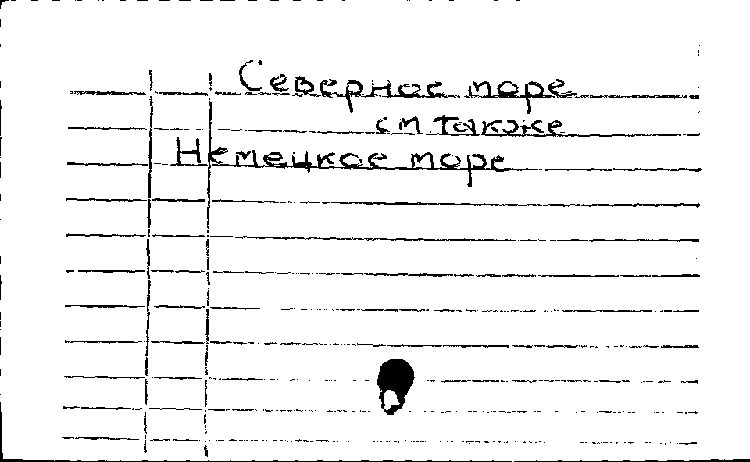 Северное море
см также
Немецкое море